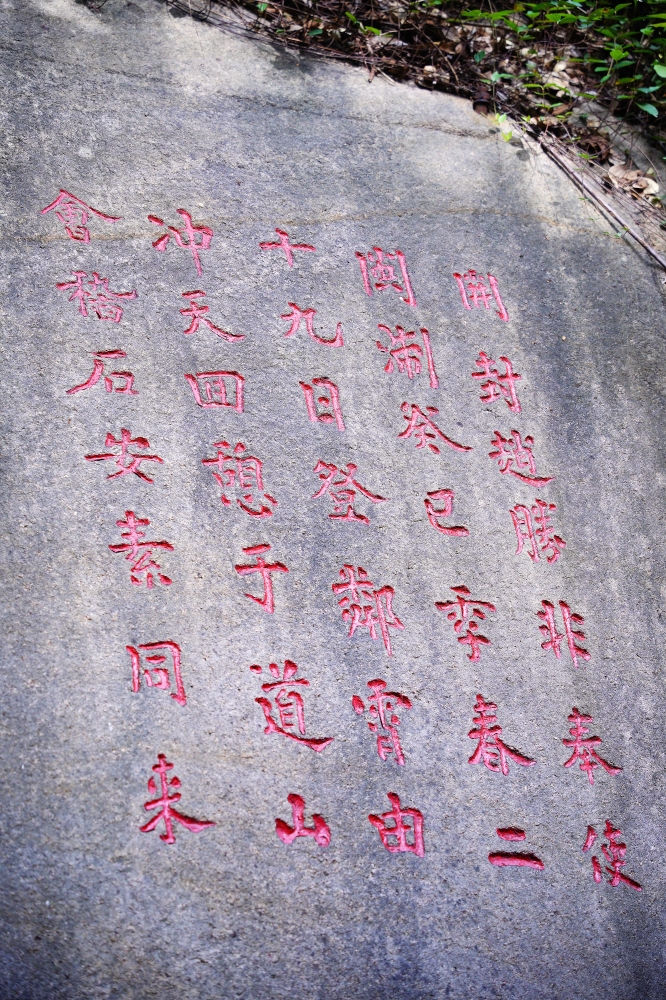 開封趙勝非奉使
閩癸巳季春二
十九日登鄰霄由
冲天囬憩于道山
會稽石安素同来